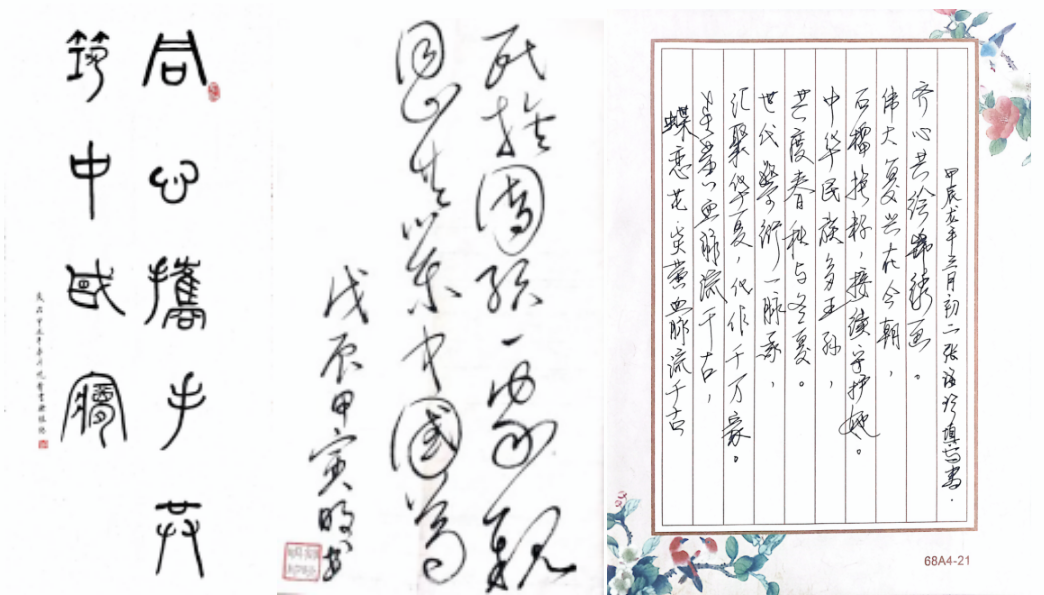 同心攜手共
筑中國夢
民族團結一家親
同心共築中國夢
戊辰甲寅
蝶恋花 炎黄血脉流千古
炎黄血脉流千古，
汇聚华夏，代作千万家。
世代学术一脉承，
共度春秋与冬夏。
中华民族多王孙，
石榴抱籽，接续守护她。
伟大复兴在今朝，
齐心共绘锦绣画。
甲辰龙年三月初二张
68A4-21